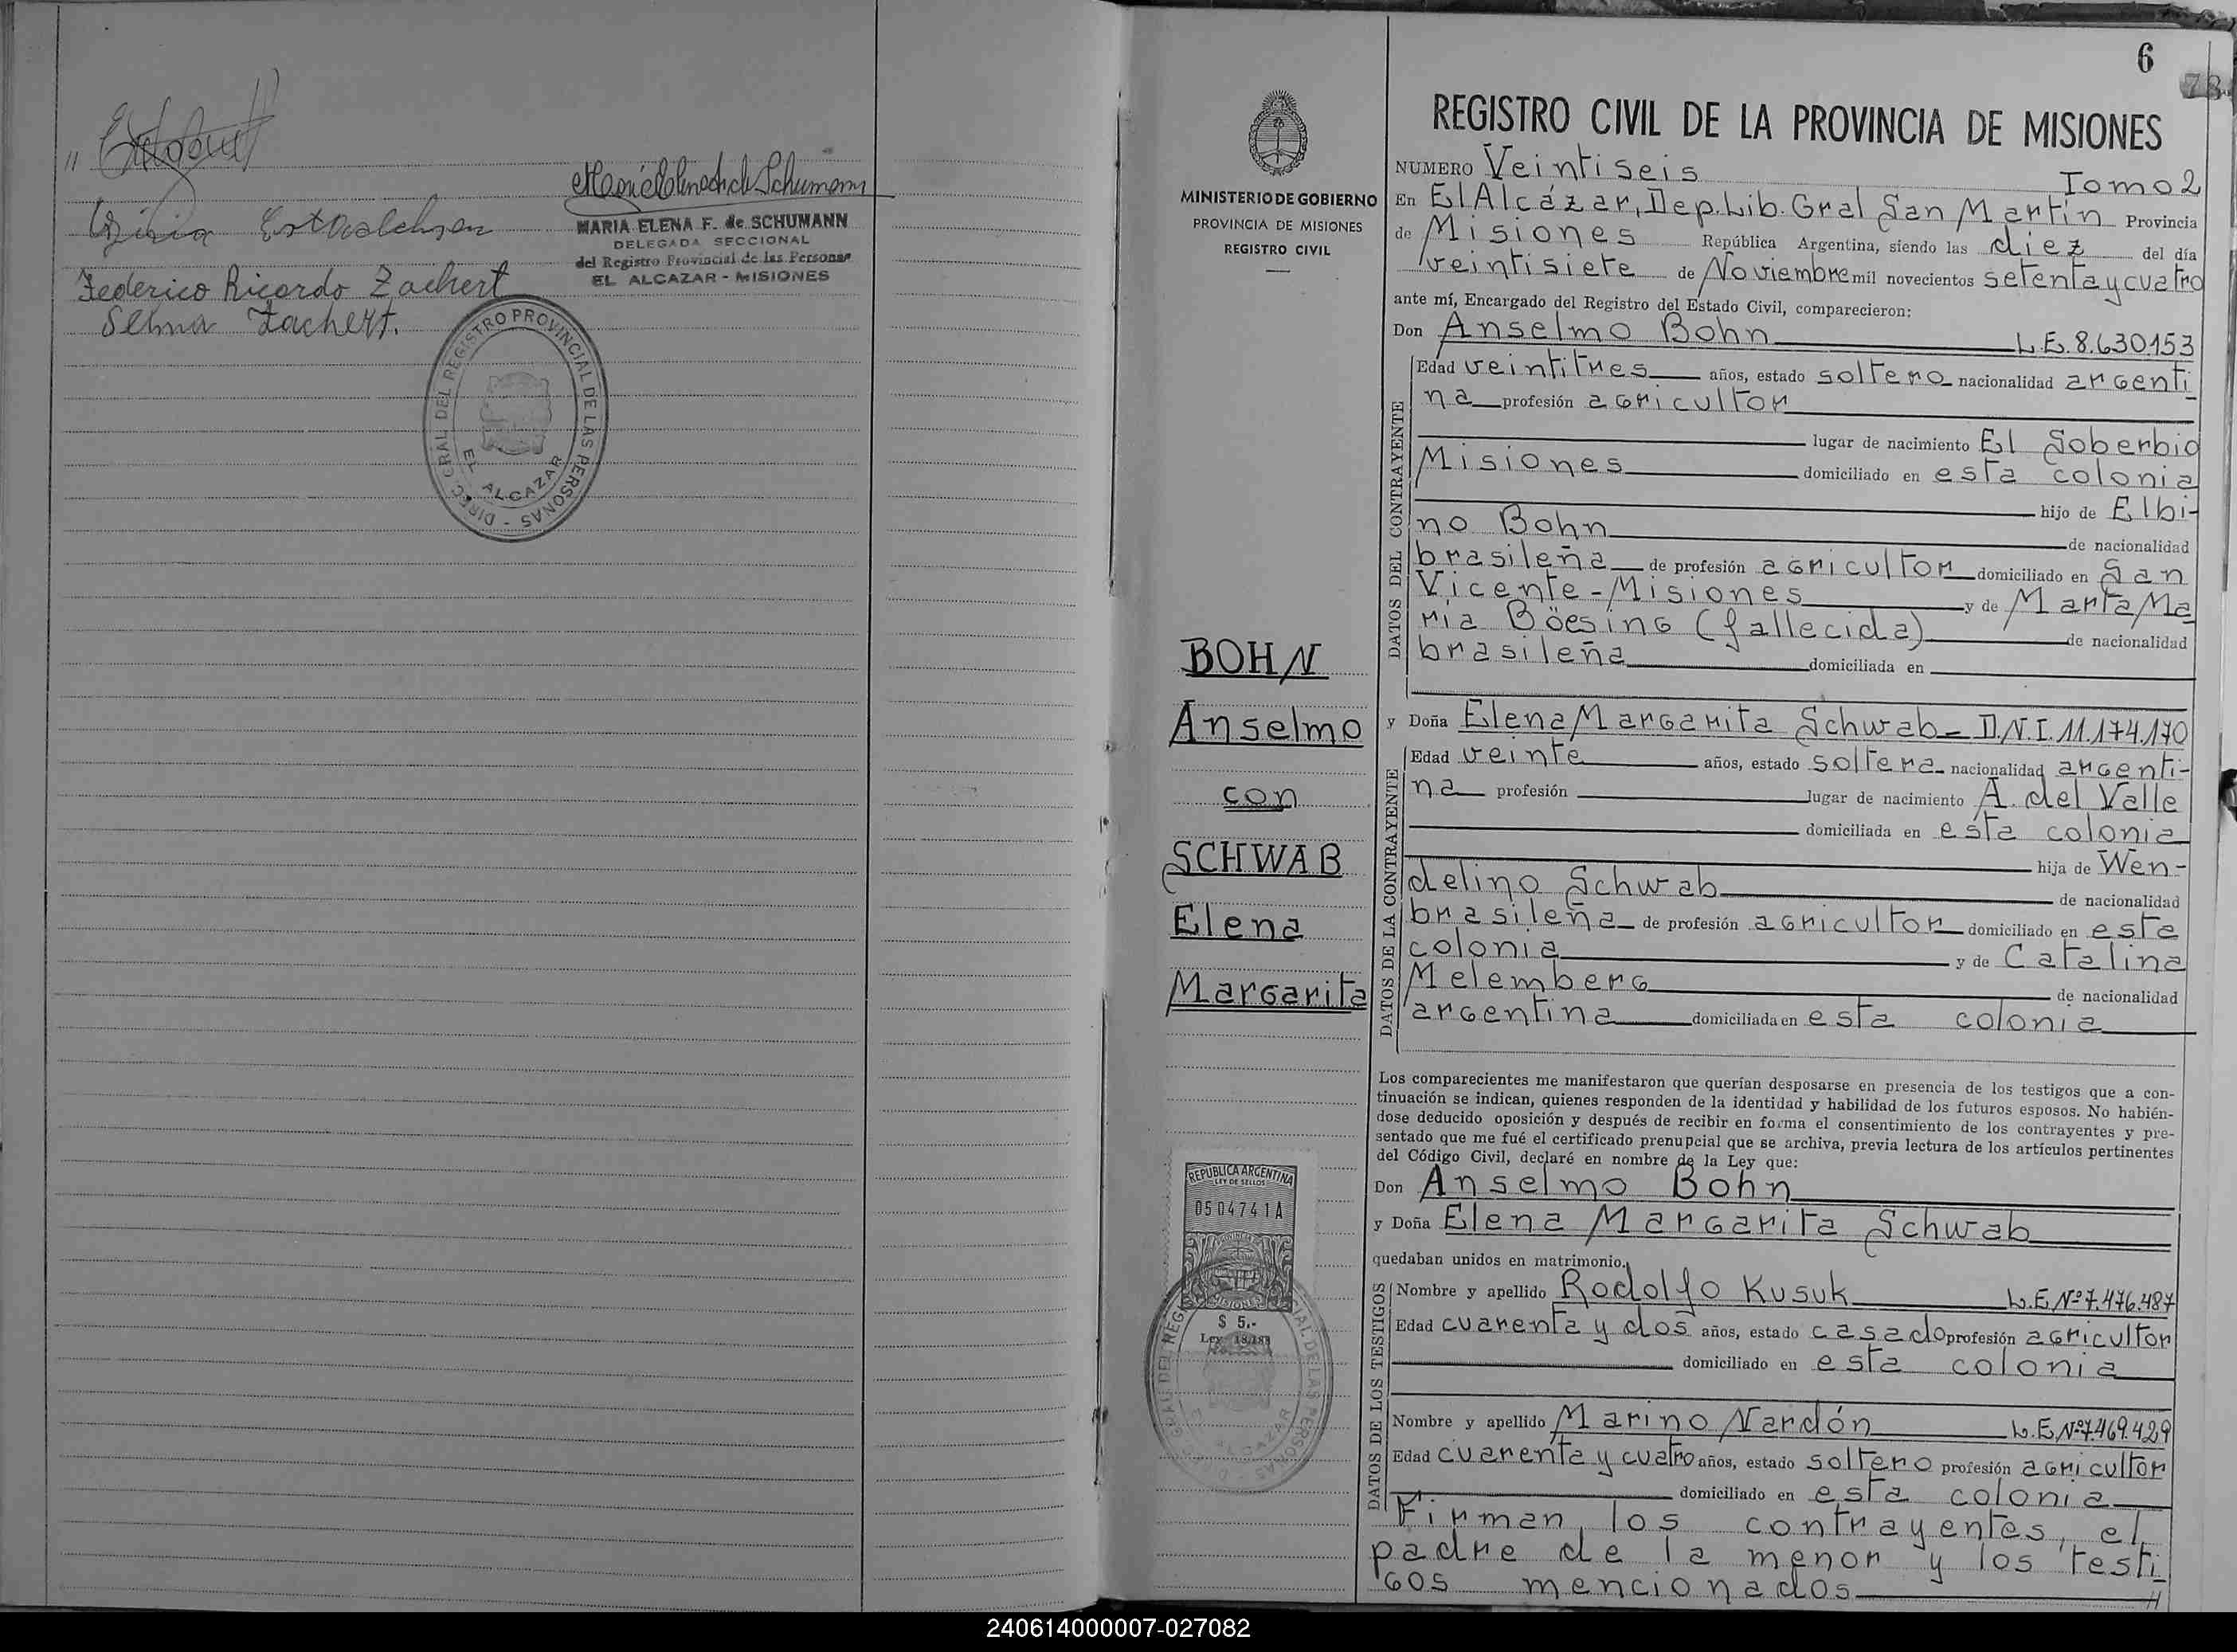 "
MARIA ELENA F. de SCHUMANN
DELEGADA SECCIONAL
del Registro Provincial de las Personas
EL ALCAZAR - MISIONES
Federico Ricardo Zachert
Selma Zachert.
DIREC. GRAL DEL REGISTRO PROVINCIAL DE LAS PERSONAS -
EL ALCAZAR
6
73
MINISTERIO DE GOBIERNO
PROVINCIA DE MISIONES
REGISTRO CIVIL
BOHN
Anselmo
con
SCHWAB
Elena
Margarita
REPUBLICA ARGENTINA
LEY DE SELLOS
0504741A
MISIONES
$ 5.-
Ley 18.188
REGISTRO CIVIL DE LA PROVINCIA DE MISIONES
NUMERO Veintiseis Tomo 2
En El Alcázar, Dep. Lib. Gral San Martín Provincia
de Misiones República Argentina, siendo las diez del día
veintisiete de Noviembre mil novecientos setenta y cuatro
ante mí, Encargado del Registro del Estado Civil, comparecieron:
Don Anselmo Bohn L.E. 8.630.153
DATOS DEL CONTRAYENTE
Edad veintitres años, estado soltero nacionalidad argenti
na profesión agricultor
lugar de nacimiento El Soberbio
Misiones domiciliado en esta colonia
hijo de Elbi-
no Bohn de nacionalidad
brasileña de profesión agricultor domiciliado en San
Vicente - Misiones y de Marta Ma
ria Böesing (fallecida) de nacionalidad
brasileña domiciliada en
y Doña Elena Margarita Schwab - D.N.I. 11.174.170
DATOS DE LA CONTRAYENTE
Edad veinte años, estado soltera nacionalidad argenti-
na profesión lugar de nacimiento A. del Valle
domiciliada en esta colonia
hija de Wen-
delino Schwab de nacionalidad
brasileña de profesión agricultor domiciliado en esta
colonia y de Catalina
Melemberg de nacionalidad
argentina domiciliada en esta colonia
Los comparecientes me manifestaron que querían desposarse en presencia de los testigos que a con-
tinuación se indican, quienes responden de la identidad y habilidad de los futuros esposos. No habién-
dose deducido oposición y después de recibir en forma el consentimiento de los contrayentes y pre-
sentado que me fué el certificado prenupcial que se archiva, previa lectura de los artículos pertinentes
del Código Civil, declaré en nombre de la Ley que:
Don Anselmo Bohn
y Doña Elena Margarita Schwab
quedaban unidos en matrimonio.
DATOS DE LOS TESTIGOS
Nombre y apellido Rodolfo Kusuk L.E. Nº 7.476.487
Edad cuarenta y dos años, estado casado profesión agricultor
domiciliado en esta colonia
Nombre y apellido Marino Nardón L.E. Nº 7.469.429
Edad cuarenta y cuatro años, estado soltero profesión agricultor
domiciliado en esta colonia
Firman los contrayentes, el
padre de la menor y los testi
gos mencionados //
240614000007-027082